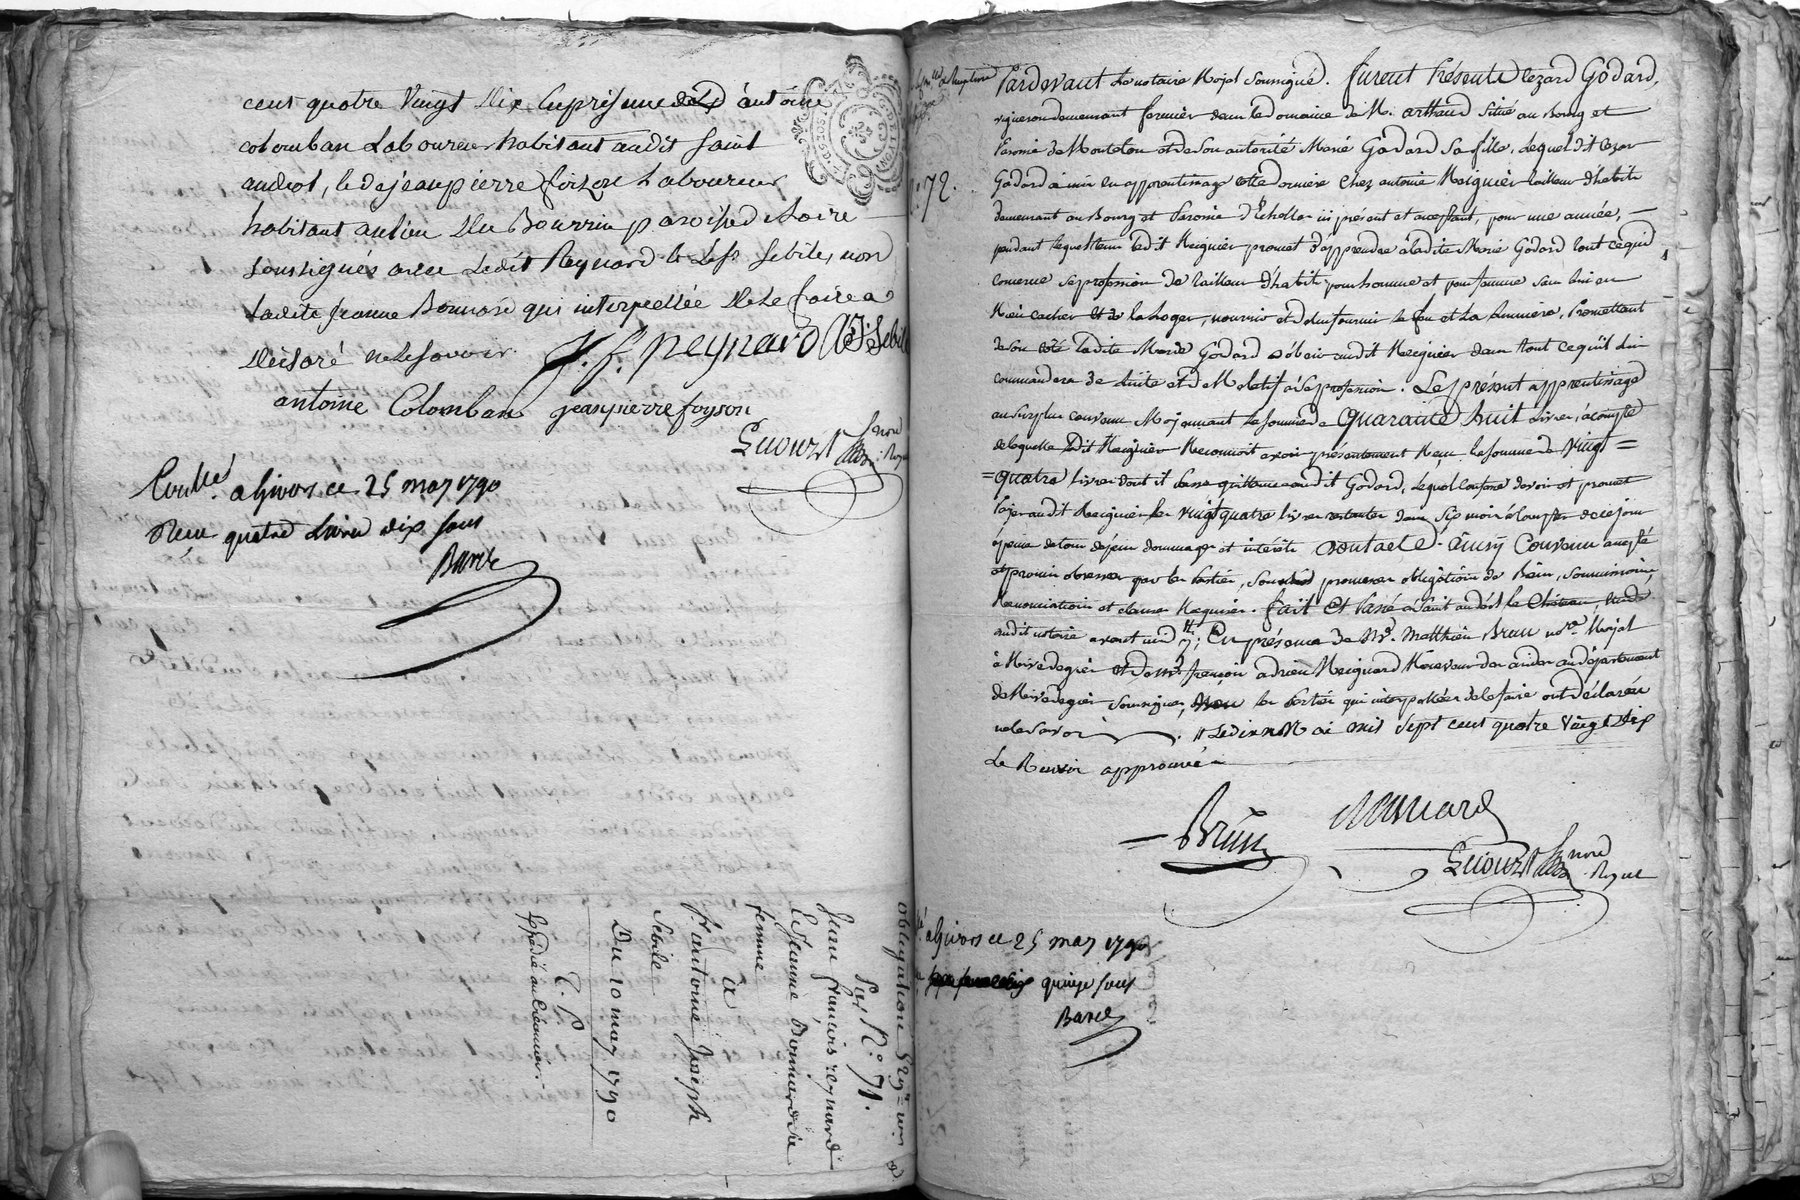 cent quatre Vingt Dix En présence de antoine
colomban Laboureur habitant audit Saint
andeol, & de jean pierre foizon Laboureur
habitant au lieu Du Bourrin paroisse de
soussignés avec Ledit Reynard & Le Sr Sebile, non
Ladite jeanne Bonnard qui interpellée De Le faire a
Déclaré ne Le savoir
J. f. reynard A J. Sebile
antoine Colomban jean pierre foyson
Guourdt nore Royal
Conllé a Givors ce 25 may 1790
Recu quatre Livres dix sous
Barve
obligation
Par N.° 71.
Jean françois reynard
& Jeanne Bonnard sa
femme
à
Sr. antoine Joseph
Sebile
Du 10 may 1790
C. P.
Expédié au Créancier.
N.° 72.
Pardevant Le notaire Royal Soussigné. furent Présents Cezard Godard,
vigneron demeurant fermier dans le Domaine de M. arthaud Situé au Bourg et
Paroisse de Montelou et de Son autorité Marie Godard Sa fille, Lequel dit Cezar
Godard a mis en apprentissage cette derniere Chez antoine Reignier tailleur d'habits
demeurant au Bourg et Paroisse d'Echellas ici présent et acceptant, pour une année,
pendant laquelle ledit Reignier promet d'apprendre à ladite Marie Godard tout ce qui
Concerne sa profession de tailleur d'habits pour homme et pour femme sans lui en
Rien cacher et de la Loger, nourrir et de lui fournir le feu et La Lumiere, Promettant
de Son Coté ladite Marie Godard d'obeir audit Reignier dans tout ce qu'il lui
commandera de Licite et de Relatif à sa profession. Le présent apprentissage
au Surplus convenu Moyennant La Somme de Quarante huit Livres, à compte
de laquelle ledit Reignier Reconnoit avoir présentement Recu La Somme de Vingt =
= quatre Livres dont il passe quittance audit Godard, Lequel Confesse devoir et promet
Payer audit Reignier les vingt quatre livres restantes dans Six mois à Compter de ce jour
à peine de tous depens dommages et interêts dont acte. Ainsy Convenu accepté
et promis observer par les Parties, Sous les promesses obligations de Biens, Soumissions,
Renonciations et clauses Requises. fait Et Passé à Saint andéol le Château, Etude
audit notaire avant midi #; En présence de Mr. Matthieu Brun nore Royal
à Rive de gier et de Mr. françois adrien Meignard Receveur des aides au département
de Rive de gier Soussignés, non les Parties qui interpellées de le faire ont déclaré
ne le Savoir. # Le dix Mai mil Sept cent quatre Vingt Dix
Le Renvoi approuvé
Brun
Guourdt nore Royal
a Givors ce 25 may 1790
quinze sous
Barve